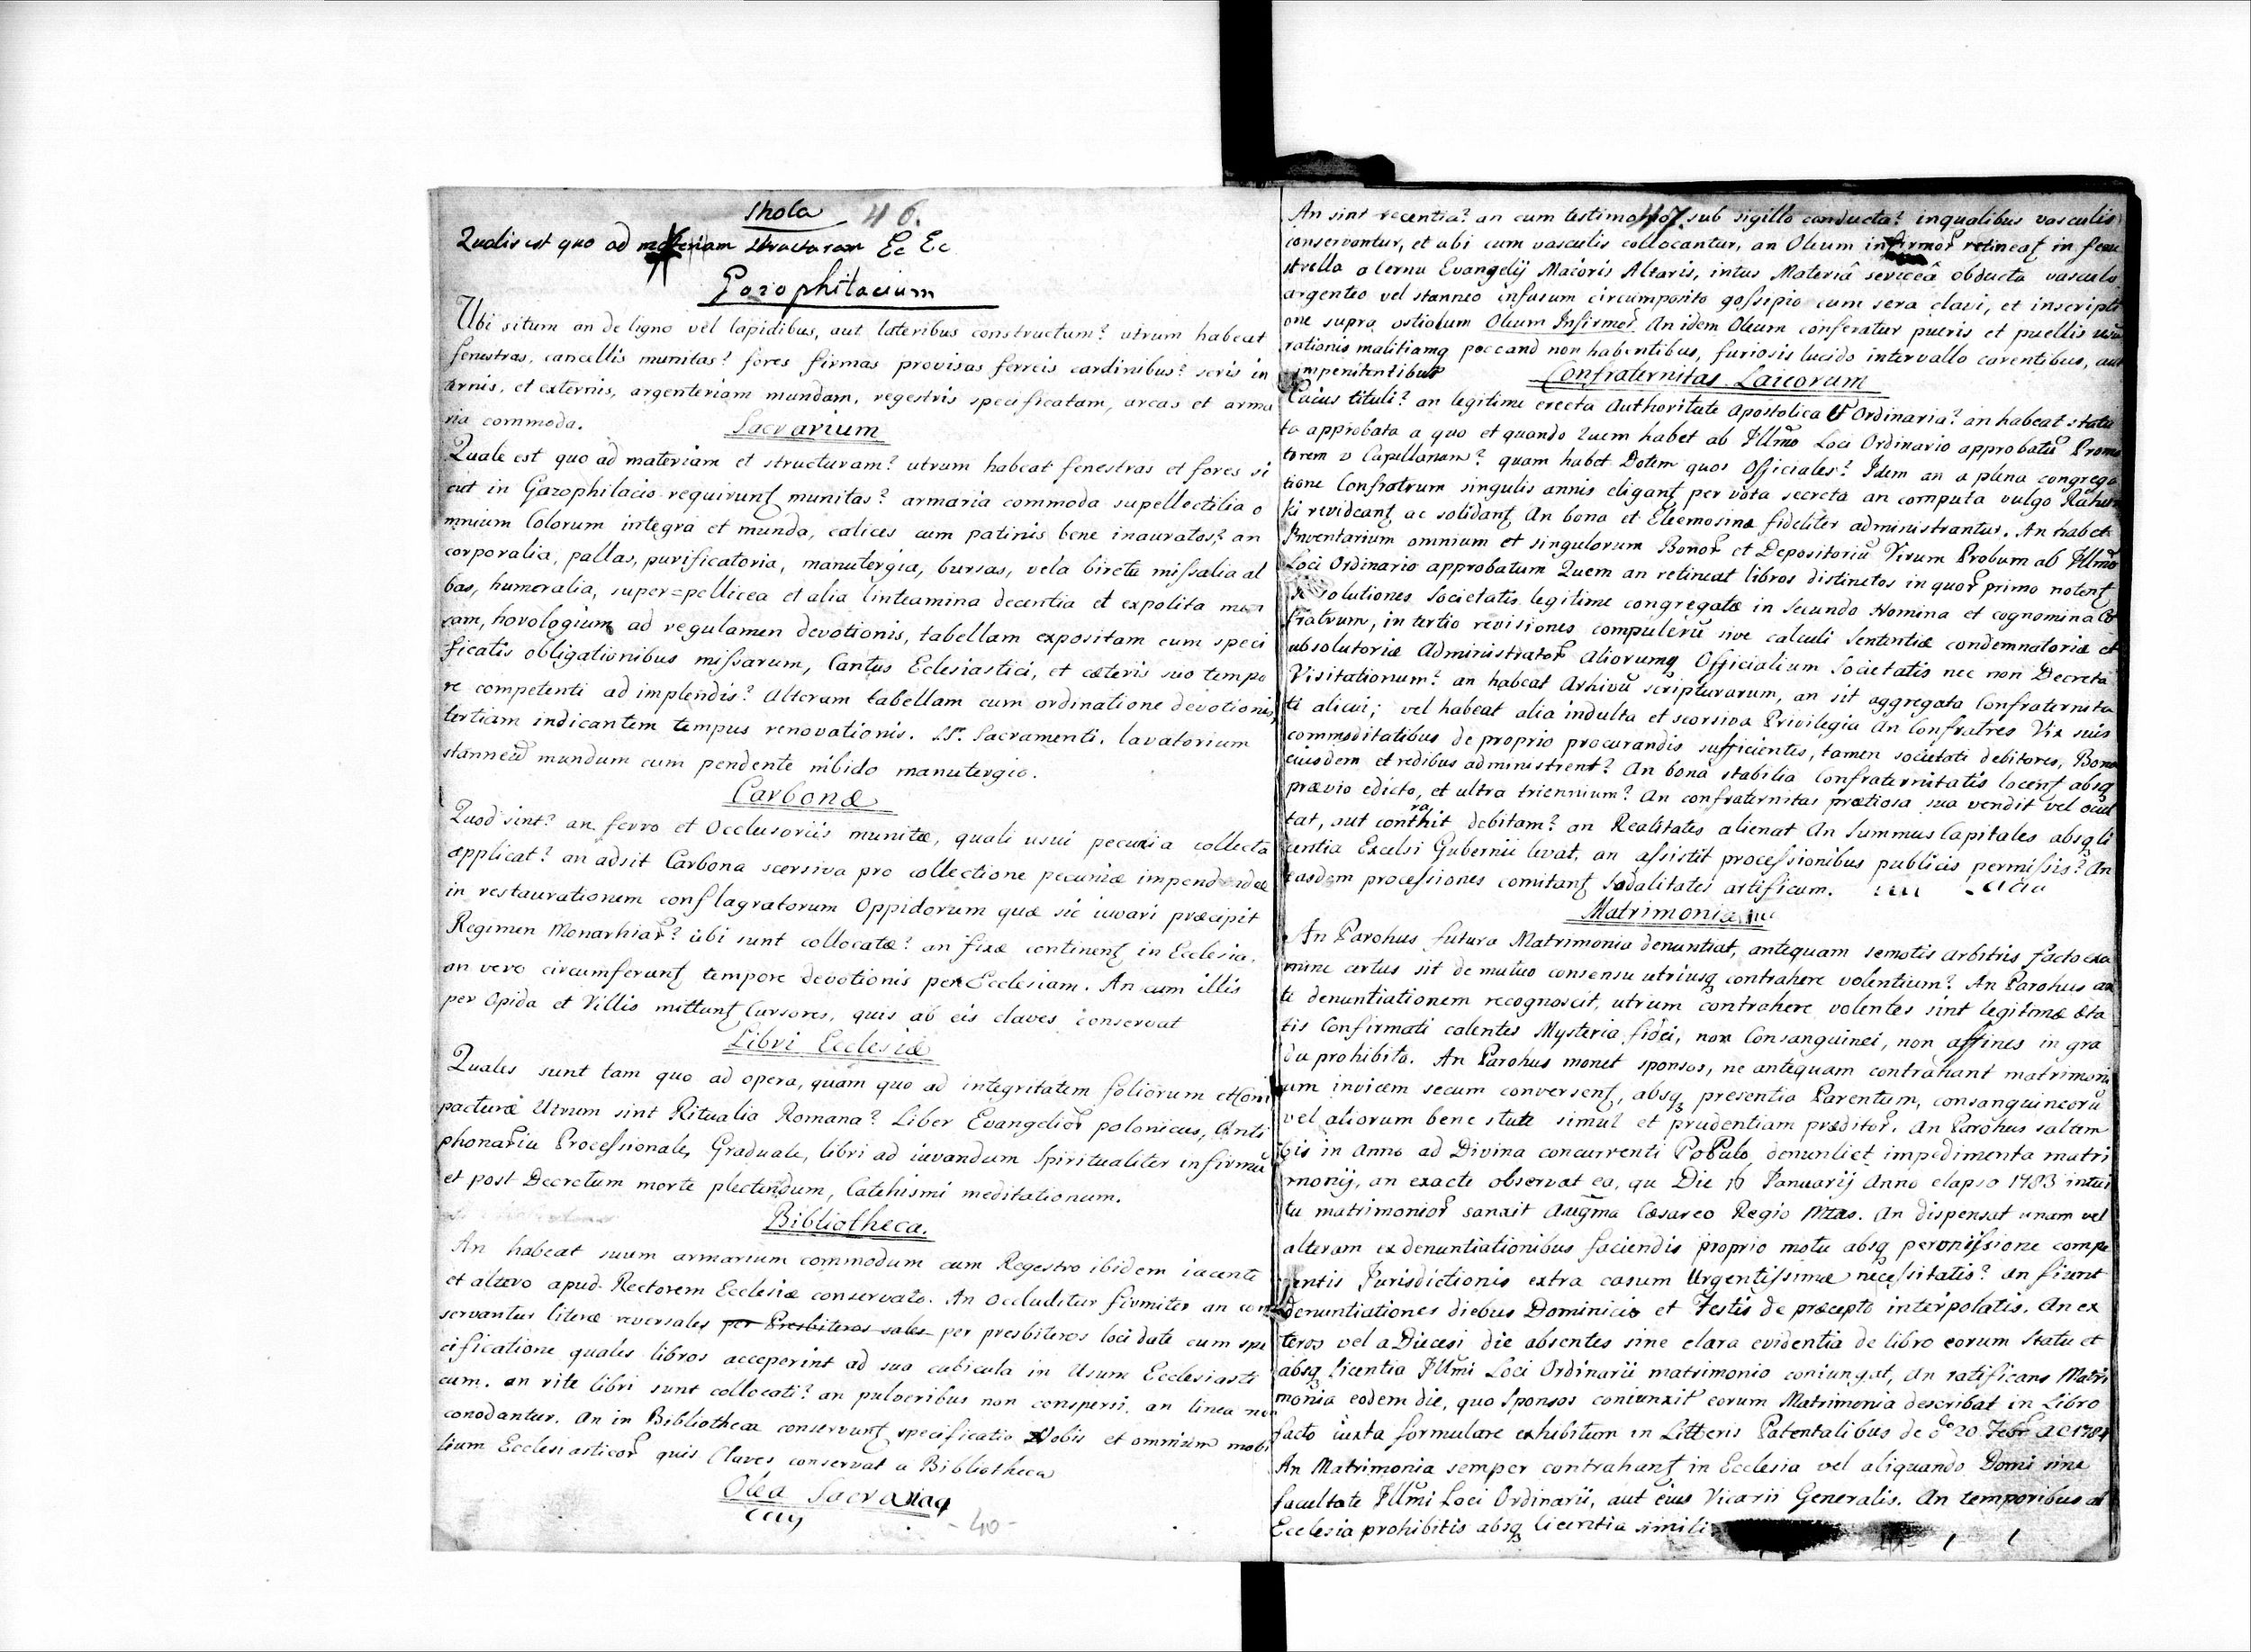 Shola 46.
Qualis est quo ad materiam structuram Ec Ec
Gazophilacium
Ubi situm an de ligno vel lapidibus, aut lateribus constructum? utrum habeat
fenestras, cancellis munitas? fores firmas provisas ferreis cardinibus? seris in
ternis, et externis, argenteriam mundam, regestris specificatam, arcas et arma
ria commoda.
Sacrarium
Quale est quo ad materiam et structuram? utrum habeat fenestras et fores si
cut in Gazophilacio requirunt munitas? armaria commoda supellectilia o
mnium Colorum integra et munda, calices cum patinis bene inauratos? an
corporalia, pallas, purificatoria, manutergia, bursas, vela bireta missalia al
bas, humeralia, super=pellicea et alia linteamina decentia et expolita
cam, horologium ad regulamen devotionis, tabellam expositam cum speci
ficatis obligationibus missarum, Cantus Eclesiastici, et cæteris suo tempo
re competenti ad implendis? Alteram tabellam cum ordinatione devotionis,
tertiam indicantem tempus renovationis. SS. Sacramenti. lavatorium
stanneũ mundum cum pendente nibido manutergio.
Carbonæ
Quod sint? an ferro et Occlusoriis munitæ, quali usui pecunia collecta
applicat? an adsit Carbona scersiva pro collectione pecuniæ impendendæ
in restaurationem conflagratorum Oppidorum quæ sic iuvari præcipit
Regimen Monarhiar? ubi sunt collocatæ? an fixæ continent in Ecclesia,
an vero circumferunt tempore devotionis per Ecclesiam. An cum illis
per Opida et Villis mittunt Cursores, quis ab eis claves conservat
Libri Ecclesiæ
Quales sunt tam quo ad opera, quam quo ad integritatem foliorum et Com
pacturæ Utrum sint Ritualia Romana? Liber Evangelior polonicus, Anti
phonariu Processionale, Graduale, libri ad iuvandum Spiritualiter infirmũ
et post Decretum morte plectendum, Catehismi meditationum.
Bibliotheca.
An habeat suum armarium commodum cum Regestro ibidem iacente
et altero apud Rectorem Ecclesiæ conservato. An Occluditur firmiter an con
servantur literæ reversales per Presbiteros sales per presbiteros loci date cum spe
cificatione quales libros acceperint ad sua cubicula in Usum Ecclesiasti
cum. an rite libri sunt collocati? an pulveribus non conspersi. an linea non
conodantur. An in Bibliothecæ conservunt specificatio Nobis et omnium mobi
lium Ecclesiasticor quis Claves conservat a Bibliotheca
Olea Sacra
- 40 -
An sint recentia? an cum testimonio 47. sub sigillo conducta? inqualibus vasculis
conservantur, et ubi cum vasculis collocantur, an Oleum infirmor retineat in fene
strella a Cernu Evangelij Maioris Altaris, intus Materiâ sericeâ obducta vasculo
argenteo vel stanneo infusum circumposito gossipio cum sera clavi, et inscripti
one supra ostiolum Oleum Infirmor. An idem Oleum conferatur pueris et puellis usũ
rationis malitiamq peccand non habentibus, furiosis lucido intervallo carentibus, aut
impenitentibus
Confraternitas Laicorum
Cuius tituli? an legitime erecta Authoritate Apostolica & Ordinaria? an habeat statu
ta approbata a quo et quando Quem habet ab Illmo Loci Ordinario approbatũ Promo
torem v Capellanum? quam habet Dotem quos Officiales? Idem an a plena congrega
tione Confratrum singulis annis eligant per vota secreta an computa vulgo Rahun
ki revideant ac solidant An bona et Eleemosina fideliter administrantur. An habet
Inventarium omnium et singulorum Bonor et Depositoriũ Virum Probum ab Illmo
Loci Ordinario approbatum Quem an retineat libros distinctos in quor primo notent
solutiones Societatis legitime congregatæ in Secundo Nomina et cognomina Co
fratrum, in tertio revisiones compuleru sive calculi Sententiæ condemnatoriæ et
absolutoriæ Administrator Aliorumq Officialium Societatis nec non Decreta
Visitationum? an habeat Arhivũ scripturarum, an sit aggregata Confraternita
ti alicui; vel habeat alia indulta et scorsiva Privilegia An Confratres Vix suis
commoditatibus de proprio procurandis sufficientes, tamen societati debitores, Bona
eiusdem et redibus administrent? An bona stabilia Confraternitatis locent absq
prævio edicto, et ultra triennium? An confraternitas prætiosa sua vendit vel ocul
tat, aut contrahit debitam? an Realitates alienat An Summus Capitales absq li
centia Excelsi Gubernii levat, an assistit processionibus publicis permissis? An
easdem processiones comitant Sodalitates artificum.
Matrimonia
An Parohus futura Matrimonia denuntiat, antequam semotis arbitris facto exa
mine certus sit de mutuo consensu utriusq contrahere volentium? An Parohus an
te denuntiationem recognoscit, utrum contrahere volentes sint legitimæ æta
tis Confirmati calentes Mysteria fidei, non Consanguinei, non affines in gra
du prohibito. An Parohus monet sponsos, ne antequam contrahant matrimoni
um invicem secum conversent, absq presentia Parentum, consanguineorũ
vel aliorum bene state simul et prudentiam præditor. An Parohus saltem
bis in Anno ad Divina concurrenti PoPulo denuntiet impedimenta matri
monij, an exacte observat ea, qu Die 16 Januarij Anno elapso 1783 intui
tu matrimonior sanxit Augma Cæsareo Regio Mtas. An dispensat unam vel
alteram ex denuntiationibus faciendis proprio motu absq permissione compe
tentis Jurisdictionis extra casum Urgentissimæ necessitatis? an fiunt
denuntiationes diebus Dominicis et Festis de præcepto interpolatis. An ex
teros vel a Diæcesi die absentes sine clara evidentia de libro eorum Statu et
absq licentia Illmi Loci Ordinarii matrimonio coniungat, An ratificans Matri
monia eodem die, quo Sponsos coniunxit eorum Matrimonia describat in Libro
facto iuxta formulare exhibitum in Litteris Patentalibus de do 20 Febr a c 1784
An Matrimonia semper contrahant in Ecclesia vel aliquando Domi sine
facultate Illmi Loci Ordinarii, aut eius Vicarii Generalis. An temporibus ab
Ecclesia prohibitis absq licentia simili